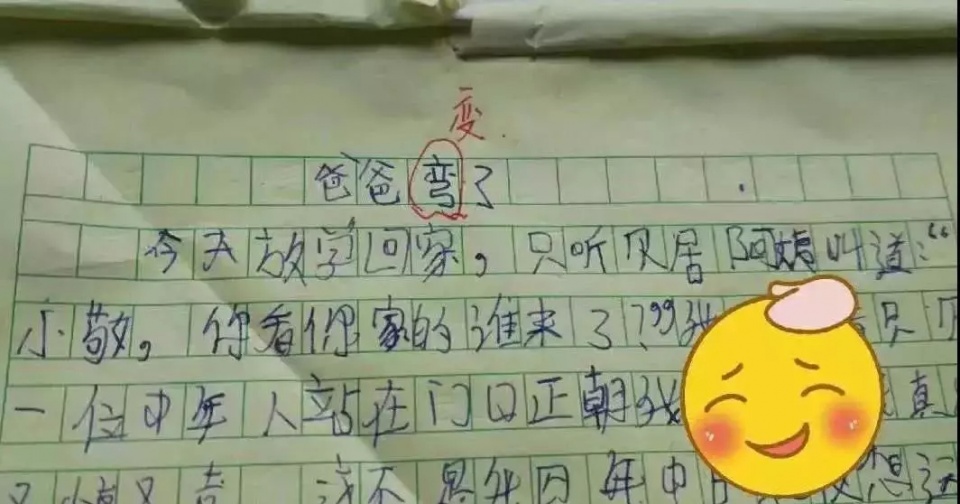 变.
爸爸弯了
今天放学回家，只听见居阿姨叫道：“
小敬，你看你家的谁来了？”我 只见
一位中年人站在门口正朝我 真
又 又 我不是 年中 想